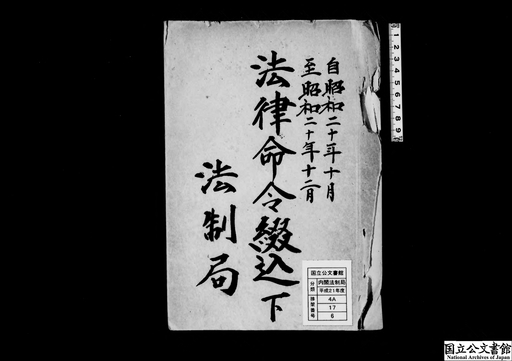 自昭和二十年十月
至昭和二十年十二月
法律命令綴込下
法制局
国立公文書館
分類
内閣法制局
平成21年度
排架番号
4A
17
6
1 2 3 4 5 6 7 8 9
国立公文書館
National Archives of Japan